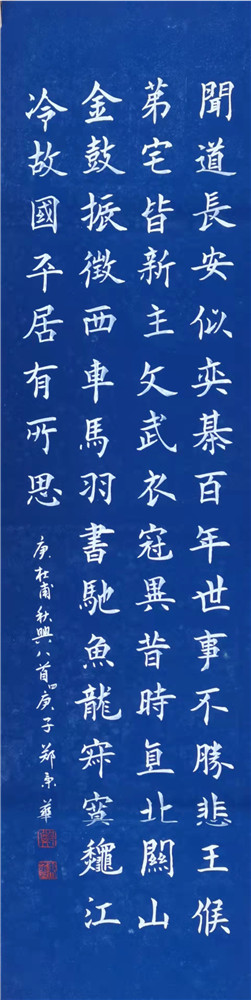 聞道長安似奕棊百年世事不勝悲王侯
苐宅皆新主文武衣冠異昔時直北關山
金鼓振徵西車馬羽書馳魚龍寂寞龝江
冷故國平居有所思
杜甫秋興八首四庚子鄭華